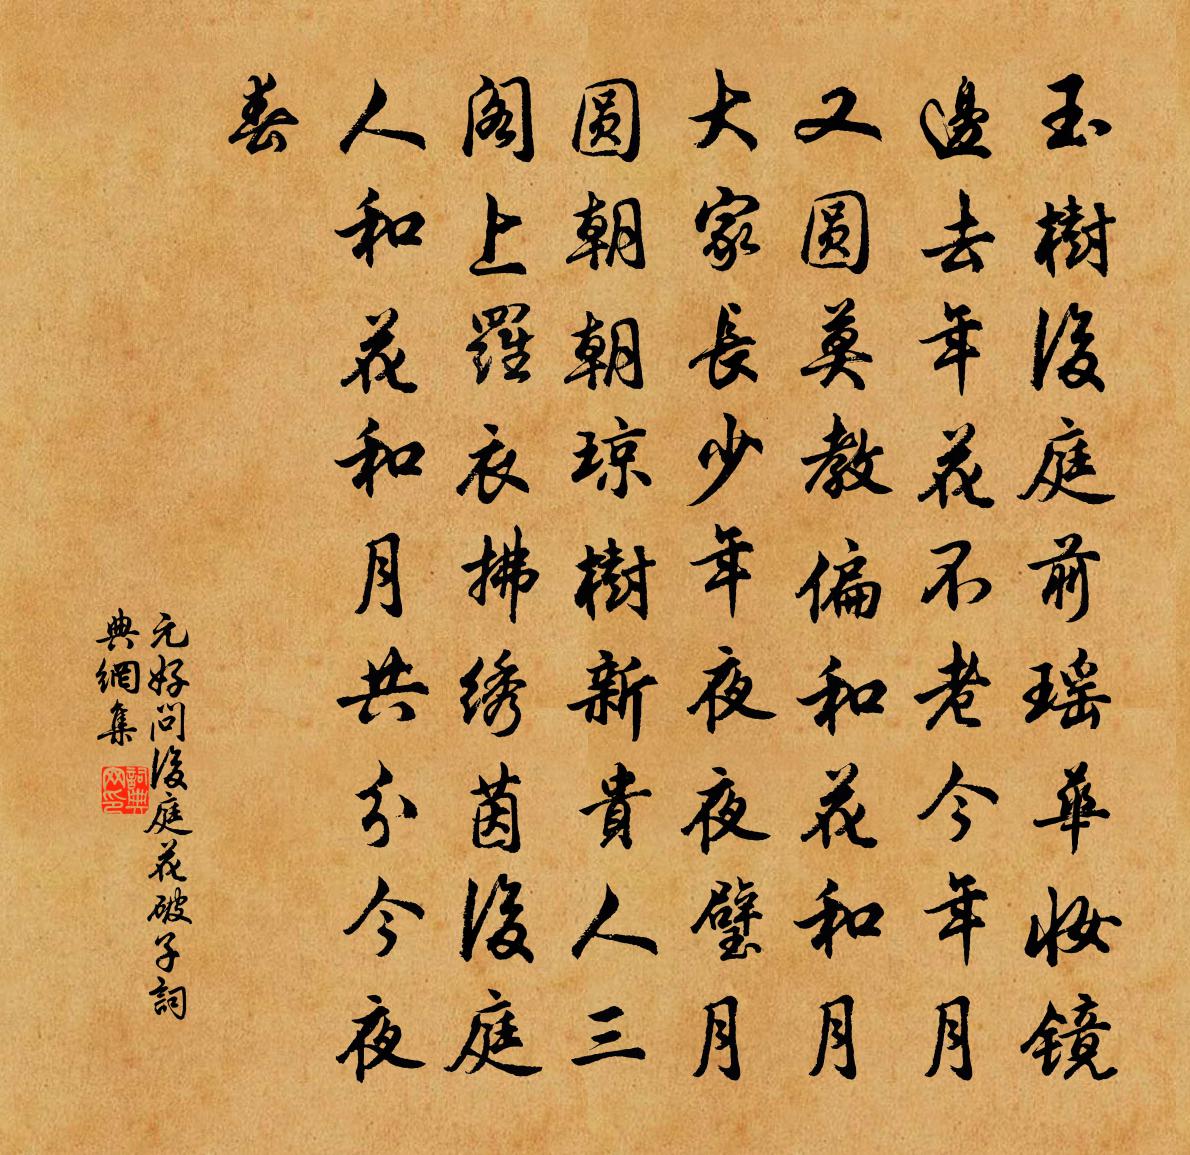 玉樹後庭前瑶華妝鏡
邊去年花不老今年月
又圆莫教偏和花和月
大家長少年夜夜璧月
圆朝朝琼樹新貴人三
阁上羅衣拂绣茵後庭
人和花和月共分今夜
春
元好问後庭花破子詞
典網集
詞典网印